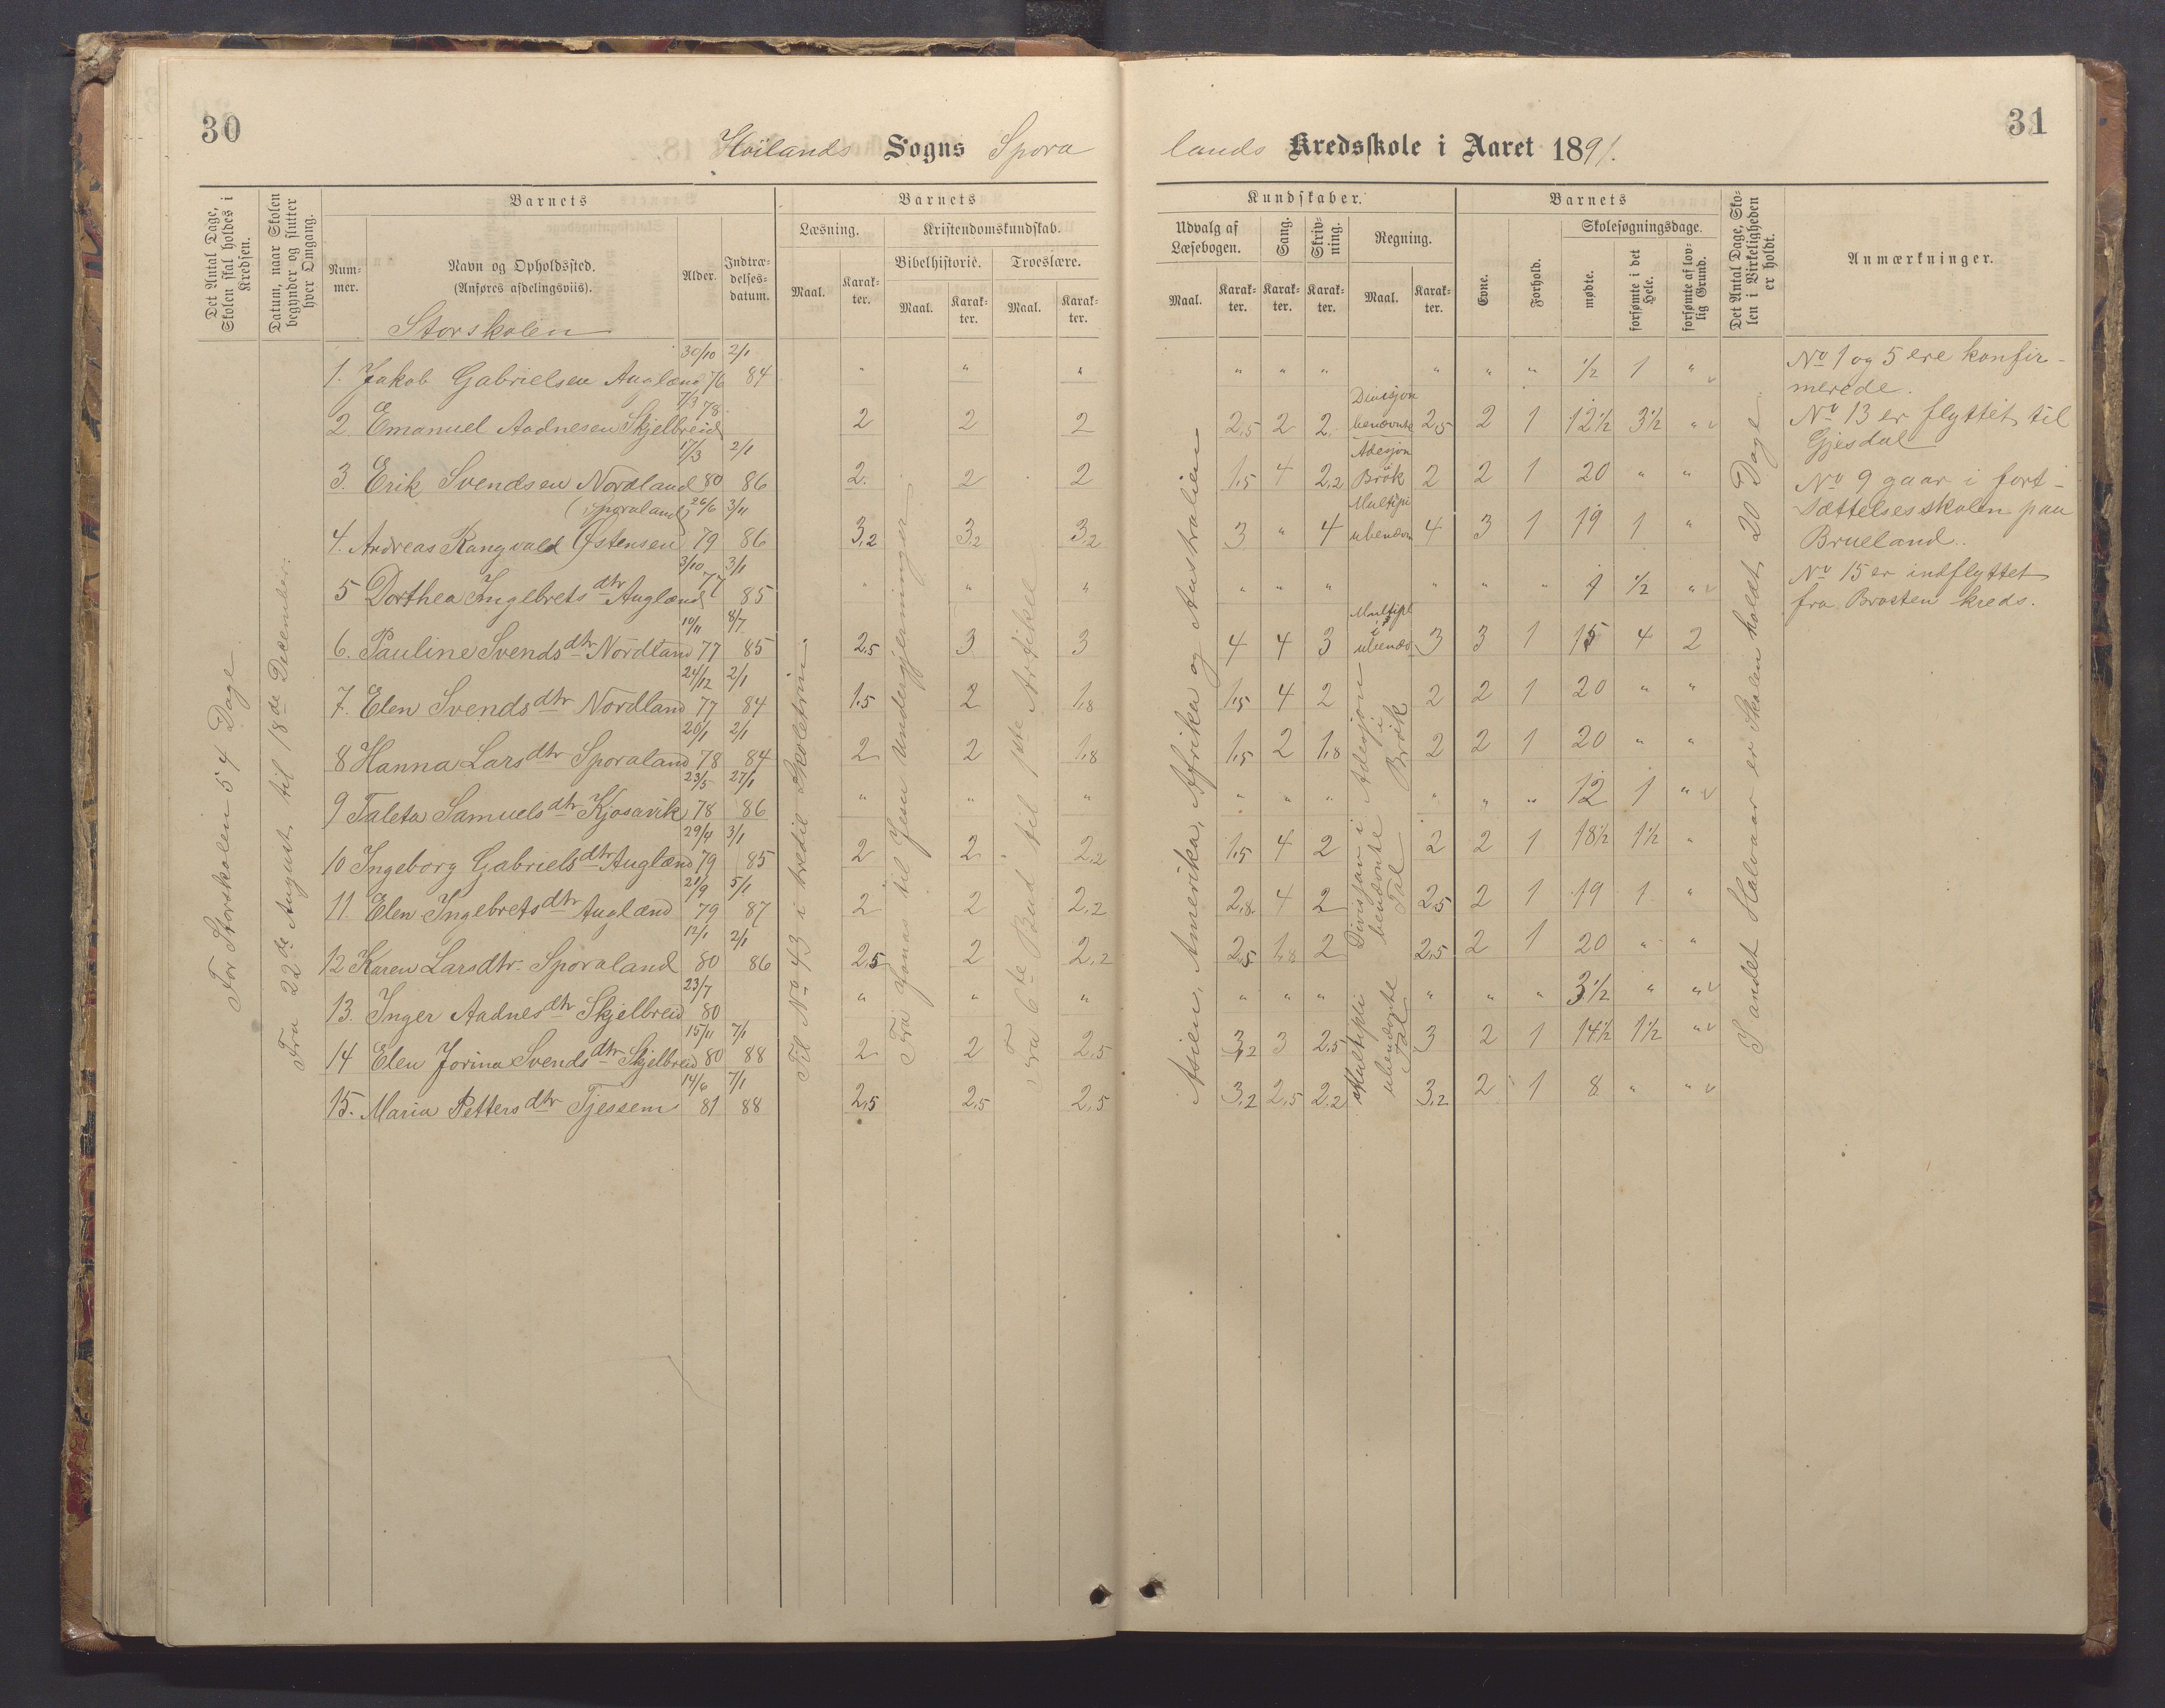 30
31
Höilands Sogns Spora
lands Kredsskole i Aaret 1891.
Det Antal Dage, Skolen skal holdes i Kredsen.
Datum, naar Skolen begynder og slutter hver Omgang.
Barnets
Nummer.
Navn og Opholdssted. (Anføres afdelingsviis).
Alder.
Indtrædelsesdatum.
Barnets
Læsning.
Maal.
Karakter.
Kristendomskundskab.
Bibelhistorie.
Maal.
Karakter.
Troeslære.
Maal.
Karakter.
Kundskaber.
Udvalg af Læsebogen.
Maal.
Karakter.
Sang.
Karakter.
Skrivning.
Karakter.
Regning.
Maal.
Karakter.
Barnets
Evne.
Forhold.
Skolesøgningsdage.
mødte.
forsømte i det Hele.
forsømte af lovlig Grund.
Det Antal Dage, Skolen i Virkeligheden er holdt.
Anmærkninger.
Storskolen
For Storskolen 54 Dage
Fra 22de August til 18de December.
Til No 43 i tredie Skoletrin.
Fra Jonas til Jesu Undergjerninger
Fra 6te Bud til 1ste Artikel
Asien, Amerika, Afrika og Australien
I andet Halvaar er Skolen holdt 20 Dage
1. Jakob Gabrielsen Auglænd 30/10 76 2/1 84 " " " " " " " " " 1/2 1 "
2 Emanuel Aadnesen Skjelbreid 7/3 78. 2 2 2 2,5 2 2. Divisjon benævnte 2,5 2 1 12 1/2 3 1/2 "
3. Erik Svendsen Nordland 17/3 80 2/1 86 2. 2 2 1,5 4 2,2 Adesjon i Brök 2 2 1 20 " "
4. Andreas Rangvald Østensen (Sporaland) 26/6 79 3/11 86 3,2 3,2 3,2 3 " 4 Multipli ubenævn 4 3 1 19 1 "
5 Dorthea Ingebretsdtr Auglænd 3/10 77 3/1 85 " " " " " " " " " 1 1/2 "
6. Pauline Svendsdtr Nordland 10/11 77 8/7 85 2,5 3 3 4 4 3 Multipl i ubenæv 3 3 1 15 4 2
7. Elen Svendsdtr Nordland 24/12 77 2/1 84 1,5 2 1,8 1,5 4 2 2 2 1 20 " "
8 Hanna Larsdtr Sporaland 20/1 78 2/1 84 2 2 1,8 1,5 2 1,8 2 2 1 20 " "
9 Taleta Samuelsdtr Kjosavik 23/5 78 27/1 86 " " " " " " " " " 12 1 "
10 Ingeborg Gabrielsdtr Auglænd 29/4 79 3/1 85 2 2 2,2 1,5 4 2 2 2 1 18 1/2 1 1/2 "
11. Elen Ingebretsdtr Auglænd 21/9 79 5/1 87 2 2 2,2 2,8 4 2 2,5 2 1 19 1 "
12 Karen Larsdtr. Sporaland 12/1 80 2/1 86 2,5 2 2,2 2,5 1,8 2 2,5 2 1 20 " "
13. Inger Aadnesdtr Skjelbreid 23/7 80 " " " " " " " " " 3 1/2 " "
14 Elen Jorina Svendsdtr Skjelbreid 15/11 80 7/1 88 2 2 2,5 3,2 3 2,5 3 2 1 14 1/2 1 1/2 "
15. Maria Pettersdtr Tjessem 14/6 81 7/1 88 2,5 2,5 2,5 3,2 2,5 2,2 3,2 2 1 8 " "
Adesjon i Brök
Divisjon i benævnte Tal
Multipli ubenævnte Tal
No 1 og 5 ere konfir-
merede.
No 13 er flyttet til
Gjesdal
No 9 gaar i fort-
sættelsesskolen paa
Brueland.
No 15 er indflyttet
fra Brasten kreds.